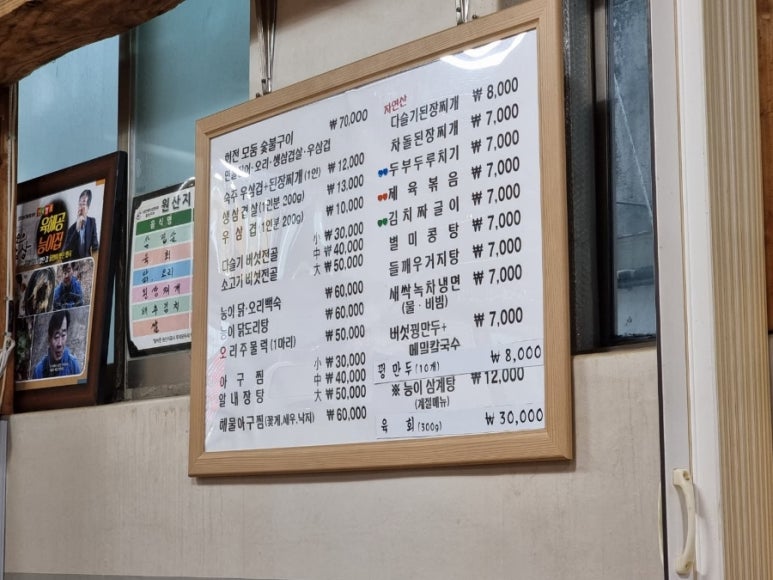 육해공
능이집
원산지
음식명
육 회
회전 모둠 숯불구이 ₩70,000
오리·생삼겹살·우삼겹
숙주 우삼겹+된장찌개(1인) ₩12,000
생삼겹살(1인분 200g) ₩13.000
우 삼 겹(1인분 200g) ₩10,000
다슬기 버섯전골 小 ₩30,000
소고기 버섯전골 中 ₩40,000
大 ₩50,000
능이 닭·오리백숙 ₩60,000
능이 닭도리탕 ₩60,000
오리주물럭(1마리) ₩50,000
小 ₩30,000
아 구 찜 中 ₩40,000
알 내 장 탕 大 ₩50,000
해물아구찜(꽃게,새우,낙지) ₩60,000
자연산
다슬기된장찌개 ₩8,000
차돌된장찌개 ₩7,000
두부두루치기 ₩7,000
제 육 볶 음 ₩7,000
김치짜글이 ₩7,000
별 미 콩 탕 ₩7,000
들깨우거지탕 ₩7,000
새싹녹차냉면 ₩7,000
(물·비빔)
버섯꿩만두+ ₩7,000
메밀칼국수
꿩 만 두(10개) ₩8,000
※ 능이 삼계탕 ₩12,000
(계절메뉴)
육 회 (300g) ₩30,000